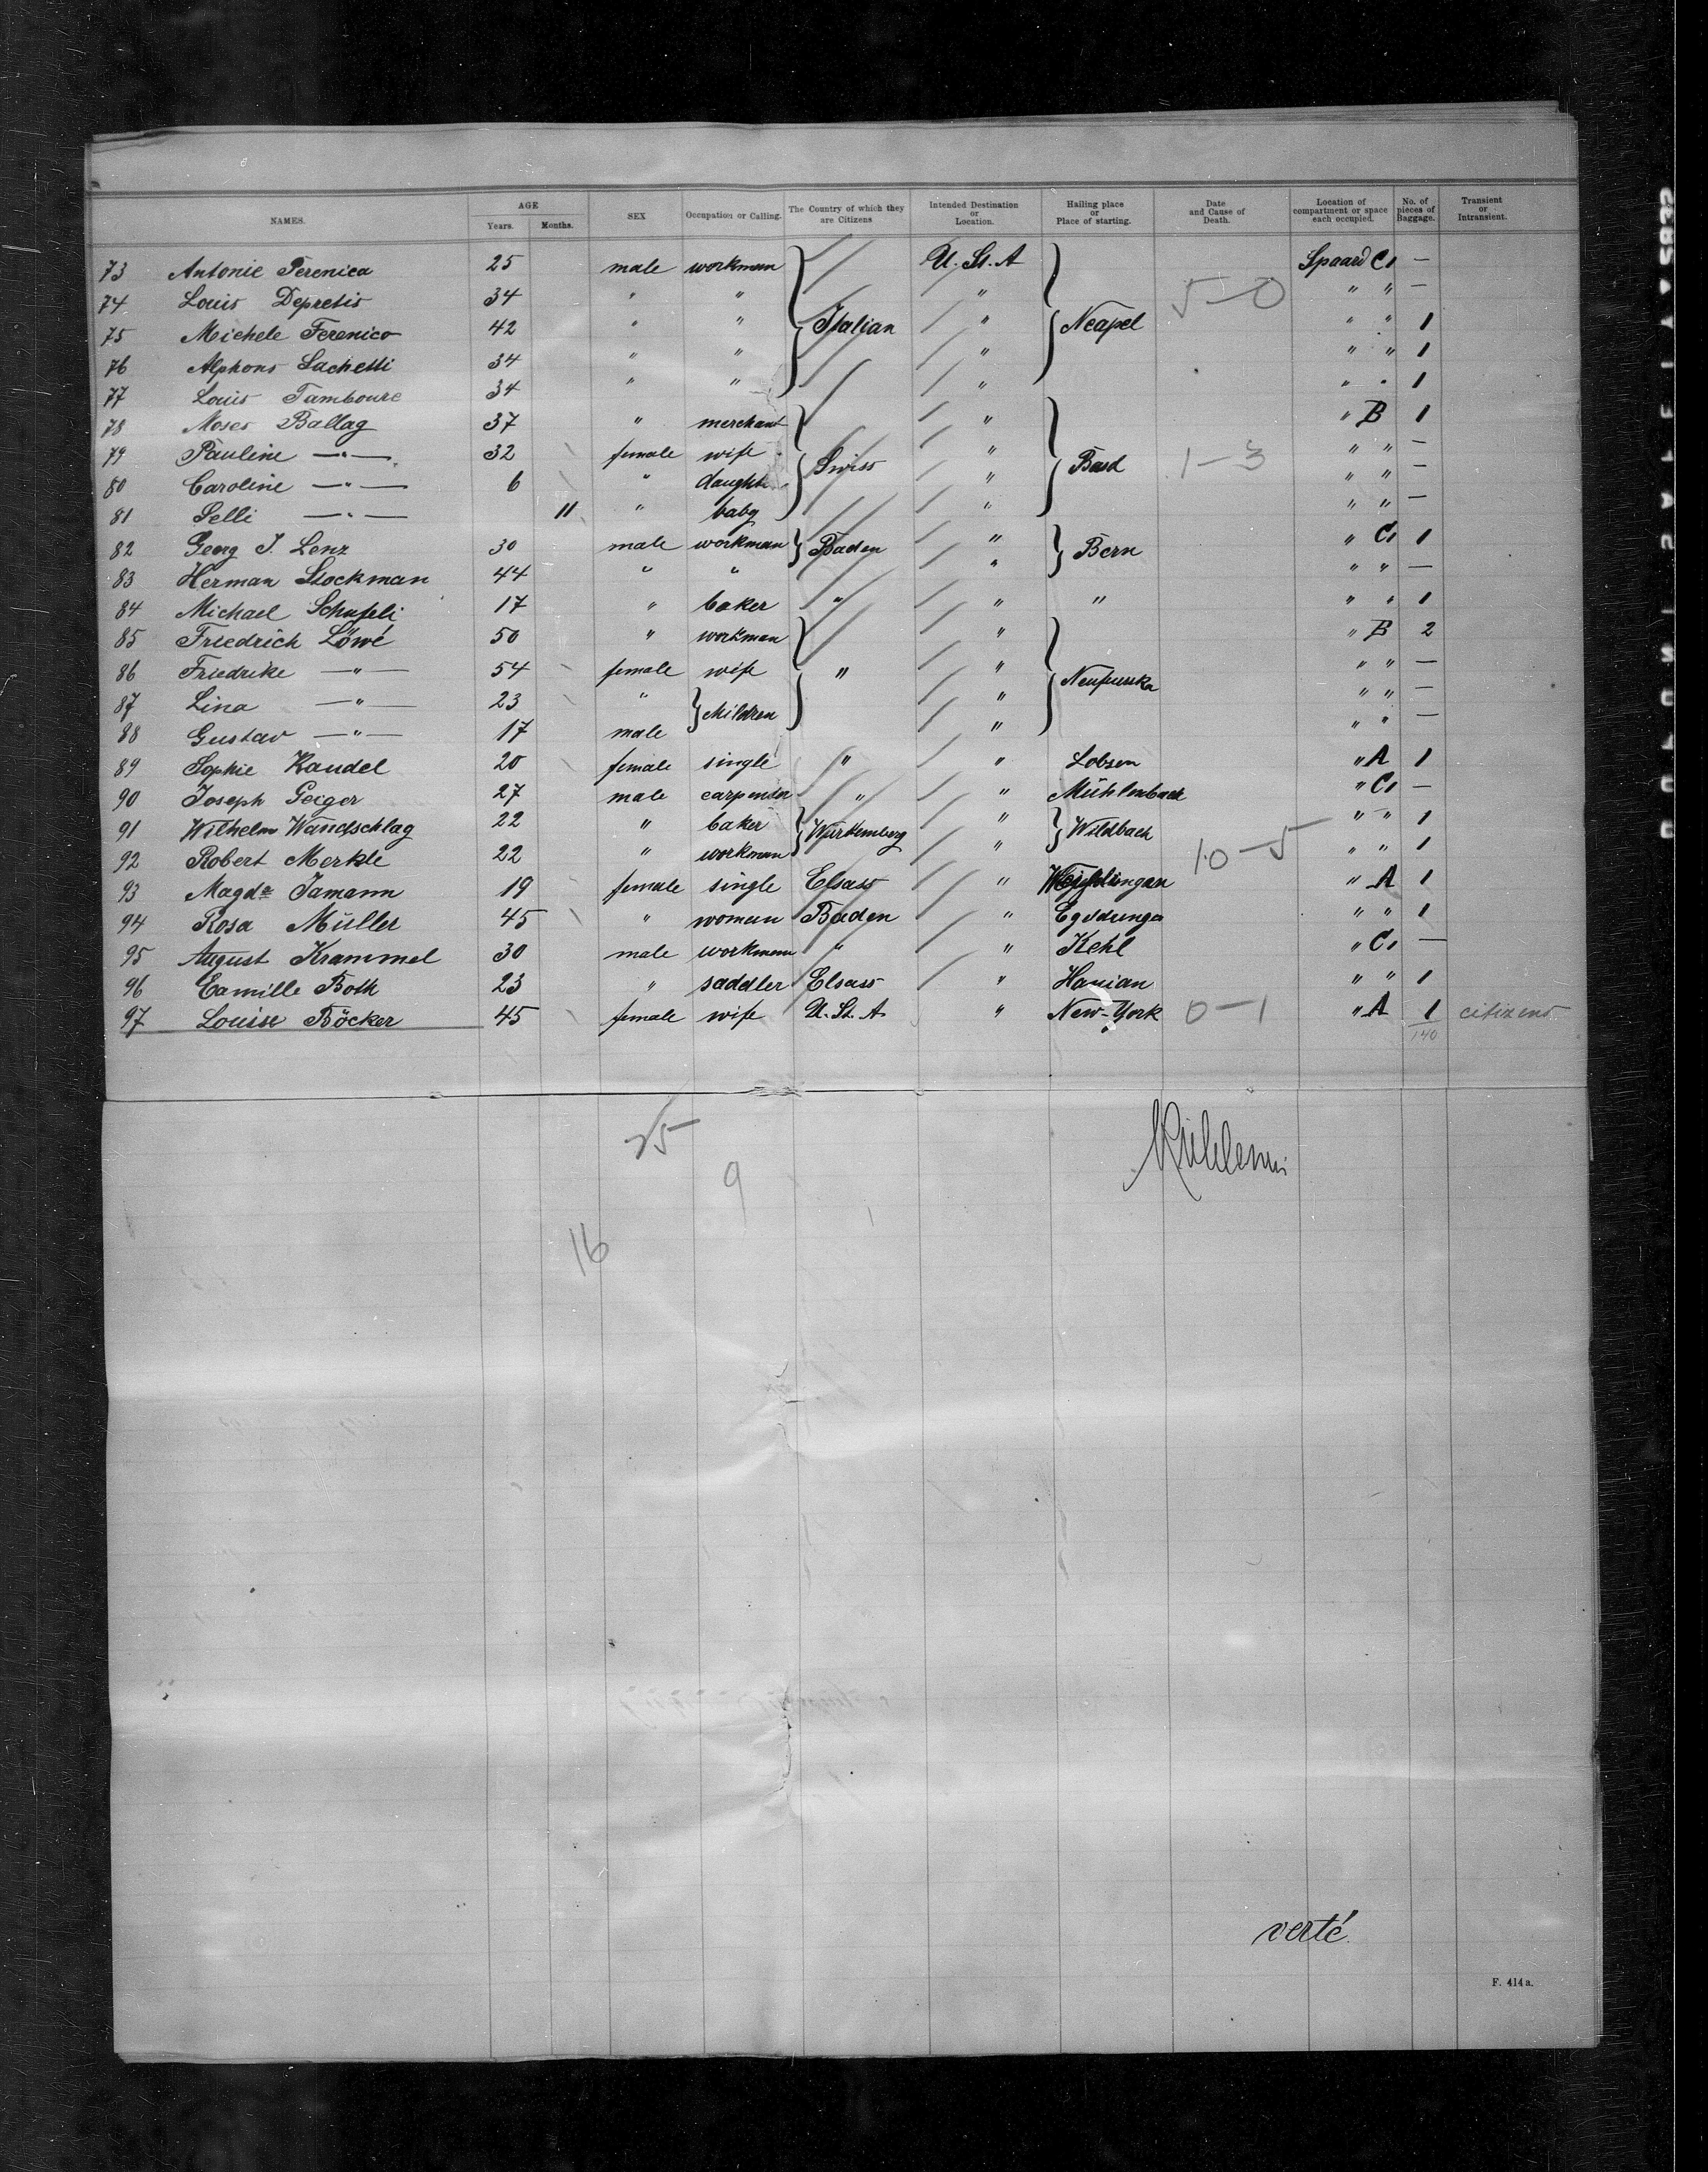 NAMES. AGE Years. Months. SEX Occupation or Calling. The Country of which they are Citizens Intended Destination or Location. Hailing place or Place of starting. Date and Cause of Death. Location of compartment or space each occupied. No. of pieces of Baggage. Transient or Intransient.
73 Antonie Perenica 25 male workman U. St. A Spaard C, —
74 Louis Depretis 34 " " " 5-0 " " —
75 Michele Ferenico 42 " " Italian " Neapel " " 1
76 Alphons Sachetti 34 " " " " " 1
77 Louis Tamboure 34 " " " " " 1
78 Moses Ballag 37 " merchant " " B 1
79 Pauline —"— 32 female wife " " " —
80 Caroline —"— 6 " daughter Swiss " Basel 1-3 " " —
81 Selli —"— 11 " baby " " " —
82 Georg J. Lenz 30 male workman Baden " Bern " C, 1
83 Herman Stockman 44 " " " " " —
84 Michael 17 " baker " " " " " 1
85 Friedrich Löwé 50 " workman " " B 2
86 Friedrike —"— 54 female wife " " " " —
87 Lina —"— 23 " children " " " —
88 Gustav —"— 17 male " " " —
89 Sophie Kandel 20 female single " " Lobsen " A 1
90 Joseph Geiger 27 male carpenter " " Mühlenbach " C, —
91 Wilhelm Wandschlag 22 " baker Würtemberg " Wildbach " " 1
92 Robert Merkle 22 " workman " 10-5 " " 1
93 Magda Jamann 19 female single Elsass " " A 1
94 Rosa Müller 45 " woman Baden " " " 1
95 August Krammel 30 male workman " " Kehl " C, —
96 Camille Both 23 " saddler Elsass " Hanian " " 1
97 Louise Böcker 45 female wife U. St. A " New-York 0-1 " A 1 citizens
140
25
9
16
verté.
F. 414 a.